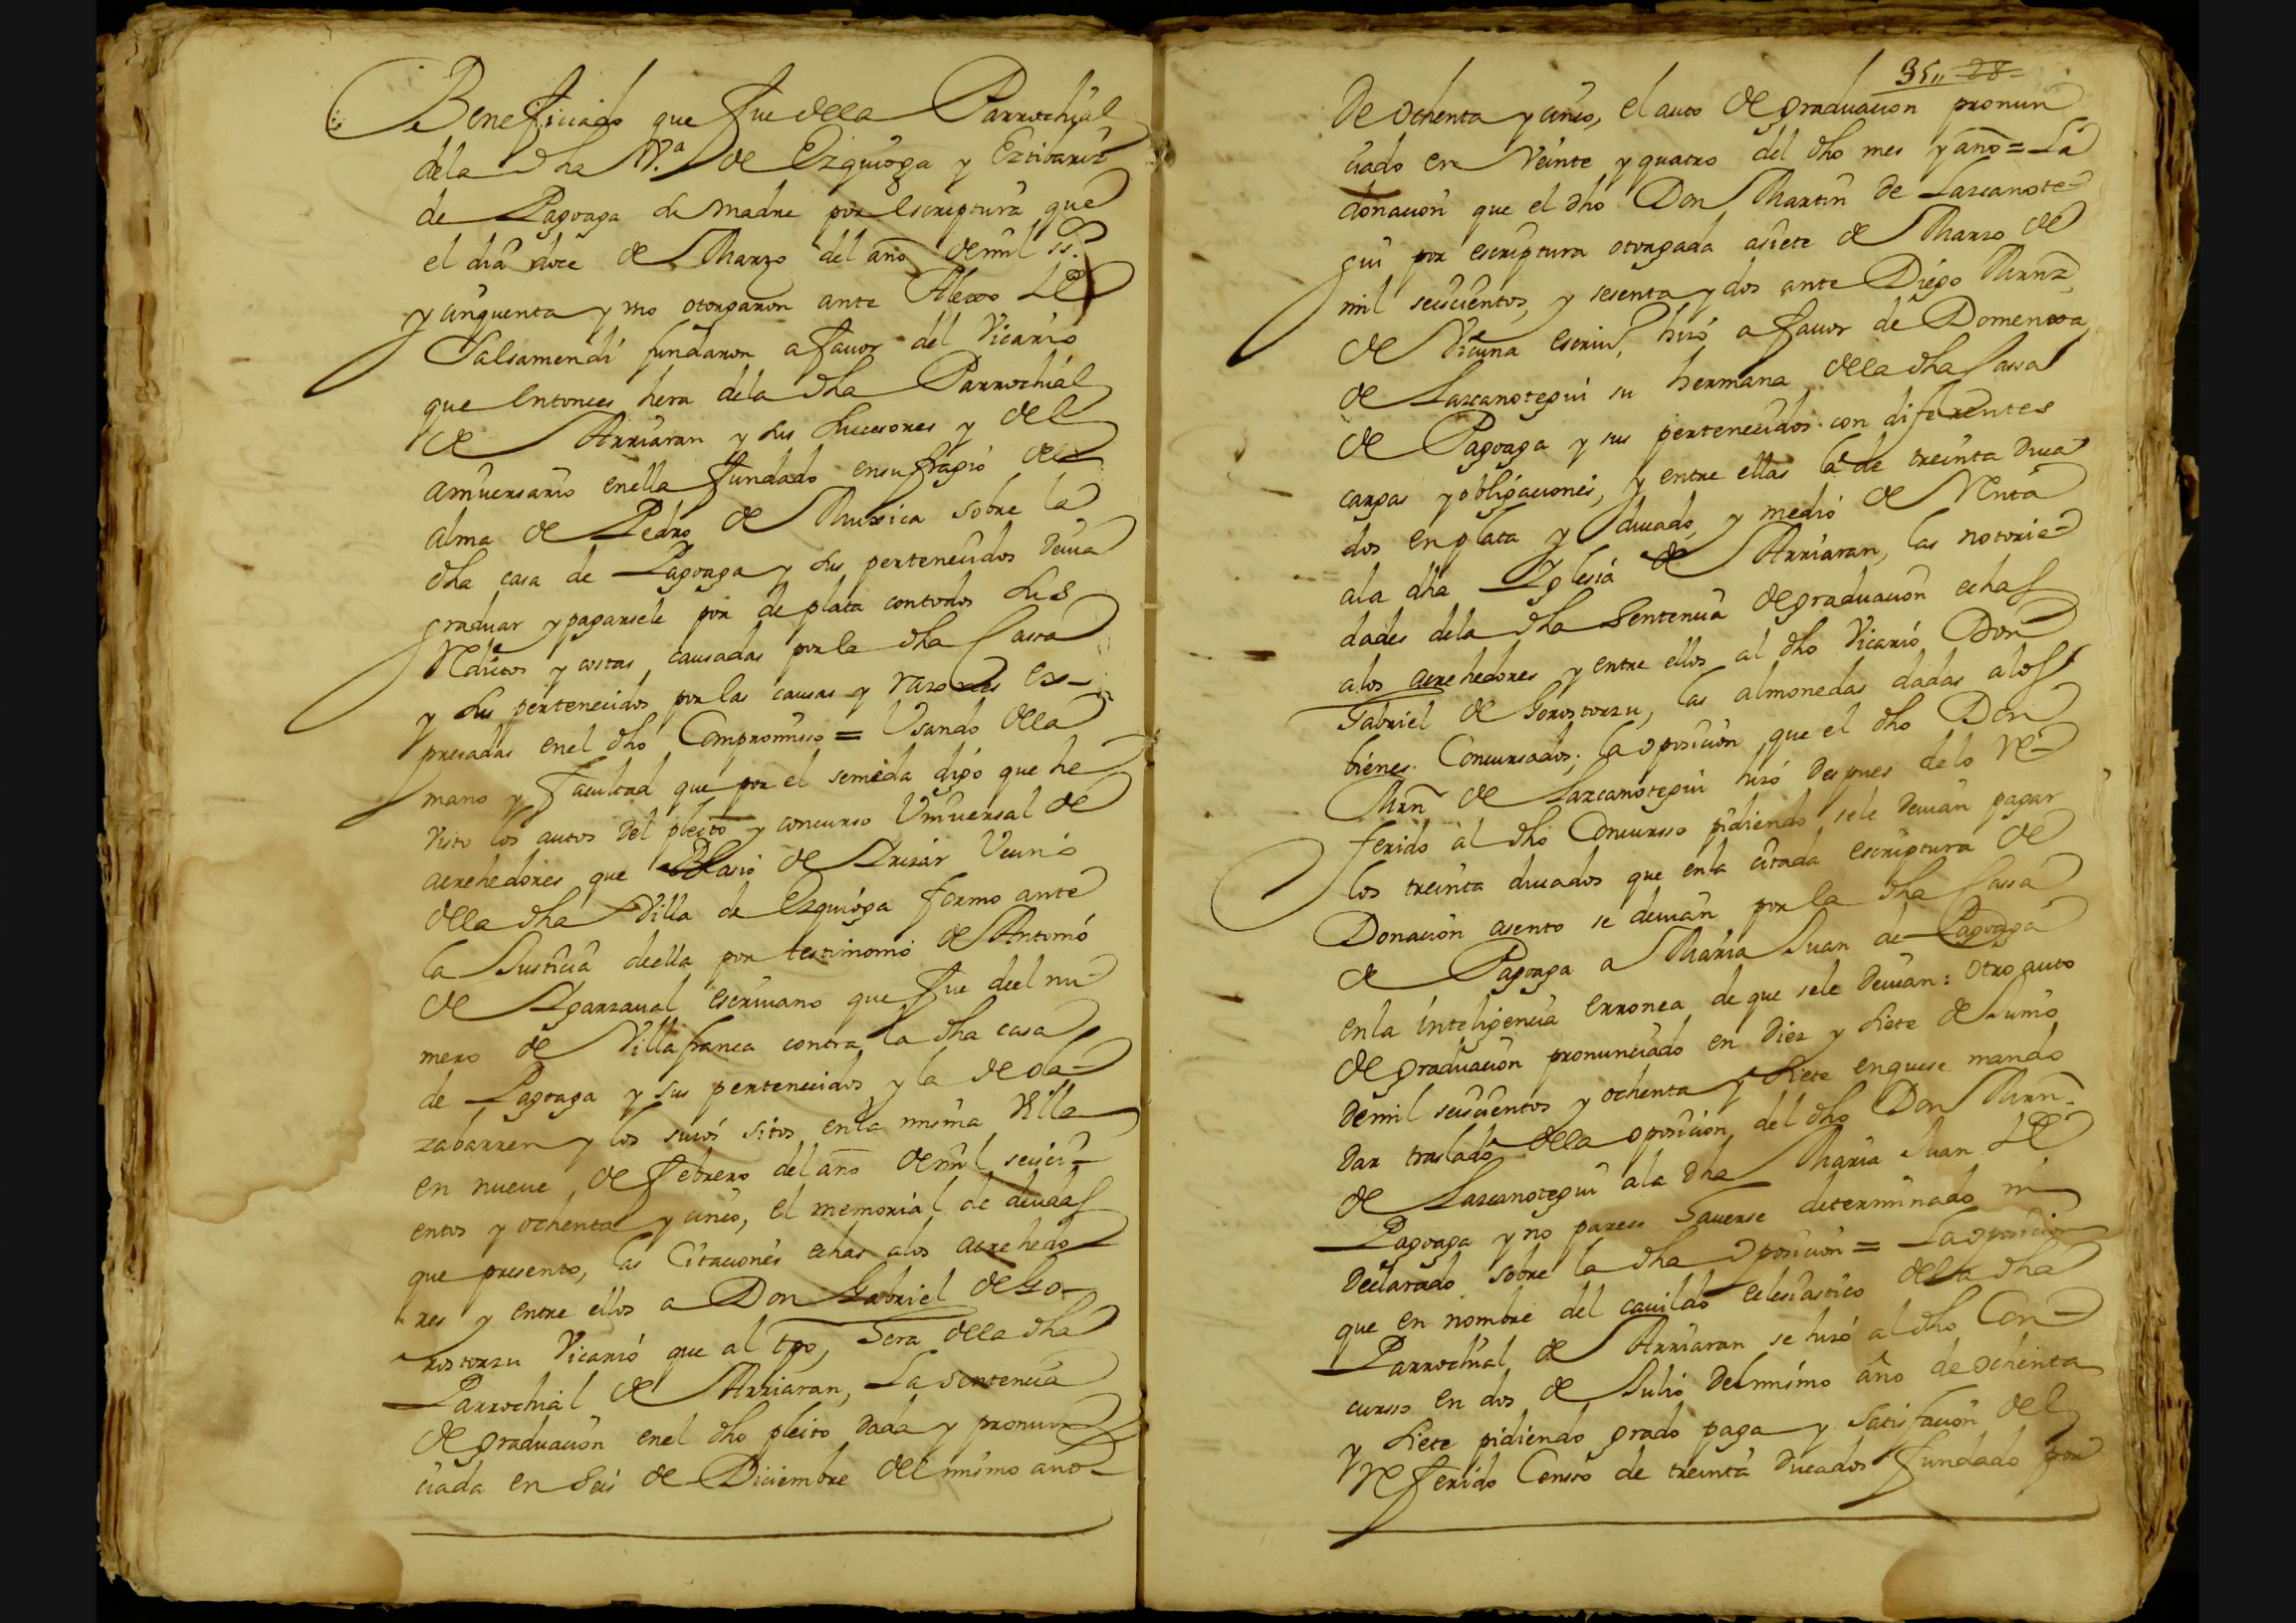 Beneficiado que fue della Parrochial
dela dha V.ª de Ezquioga y Eztibariz
de Pagoaga su madre por escriptura que
el dia doce de Marzo del año de mil ss.
y cinquenta y uno otorgaron ante Alexo de
Salsamendi fundaron a fauor del Vicario
que entonces hera dela dha Parrochial
de Arriaran y sus sucesores y del
aniuersario enella fundado ensufragio del
alma de Pedro de Muxica sobre la
dha casa de Pagoaga y sus pertenecidos deuia
graduar y pagarsele por de plata contodos sus
Reditos y costas causadas por la dha Cassa
y sus pertenecidos por las causas y razones ex-
presadas enel dho Compromisso = Usando della
mano y facultad que por el semeda digo que he
visto los autos del pleito y concurso Vniuersal de
acrehedores que Blasio de Arizar Vecino
della dha Villa de Ezquioga formo ante
la Justicia deella por testimonio de Antonio
de Agarzaual escriuano que fue deel nu-
mero de Villafranca contra la dha casa
de Pagoaga y sus pertenecidos y la de ola-
zabarren y los suios sitos enla misma Villa
en nueue de febrero del año de mil seisci-
entos y ochenta y cinco, el memorial de deudas
que presento, las Citaciones echas alos acrehedo-
res y entre ellos a Don Gabriel de Go-
rostorzu Vicario que al tpo, hera della dha
Parrochial de Arriaran, La sentencia
de graduacion enel dho pleito dada y pronun-
ciada en Seis de Diciembre del mismo año
35,, 28
de ochenta y cinco, el auto de graduacion pronun
ciado en Veinte y quatro del dho mes y año = La
donacion que el dho Don Martin de Lazcanote-
gui por escriptura otorgada asiete de Marzo de
mil seiscientos, y sesenta y dos ante Diego Mrnz
de Vicuna escriu.º hizo a fauor de Domenxa
de Lazcanotegui su hermana della dha Cassa
de Pagoaga y sus pertenecidos con diferentes
cargas y obligaciones, y entre ellas la de treinta duca
dos en plata y ducado, y medio de Renta
ala dha Yglesia de Arriaran, las notorie-
dades dela dha Sentencia de graduacion echas
alos acrehedores y entre ellos al dho Vicario Don
Gabriel de Gorostorzu, las almonedas dadas alos
bienes Concursados; la oposicion que el dho Don
Mrn de Lazcanotegui hizo despues delo Re-
ferido al dho Concursso pidiendo sele deuian pagar
los treinta ducados que enla citada escriptura de
Donacion asento se deuian por la dha Cassa
de Pagoaga a Maria Juan de Pagoaga
enla inteligencia erronea de que sele deuian: Otro auto
de graduacion pronunciado en diez y siete de Junio
de mil seiscientos y ochenta y siete enquese mando
dar traslado della oposicion del dho Don Mrn.
de Lazcanotegui ala dha Maria Juan de
Pagoaga y no parece hauerse determinado ni
declarado sobre la dha oposicion = La oposicion
que en nombre del cauildo eclesiastico della dha
Parrochial de Arriaran se hizo al dho Con-
cursso en dos de Julio del mismo año de ochenta
y siete pidiendo grado paga y satisfacion del
Referido Censo de treinta ducados fundado por